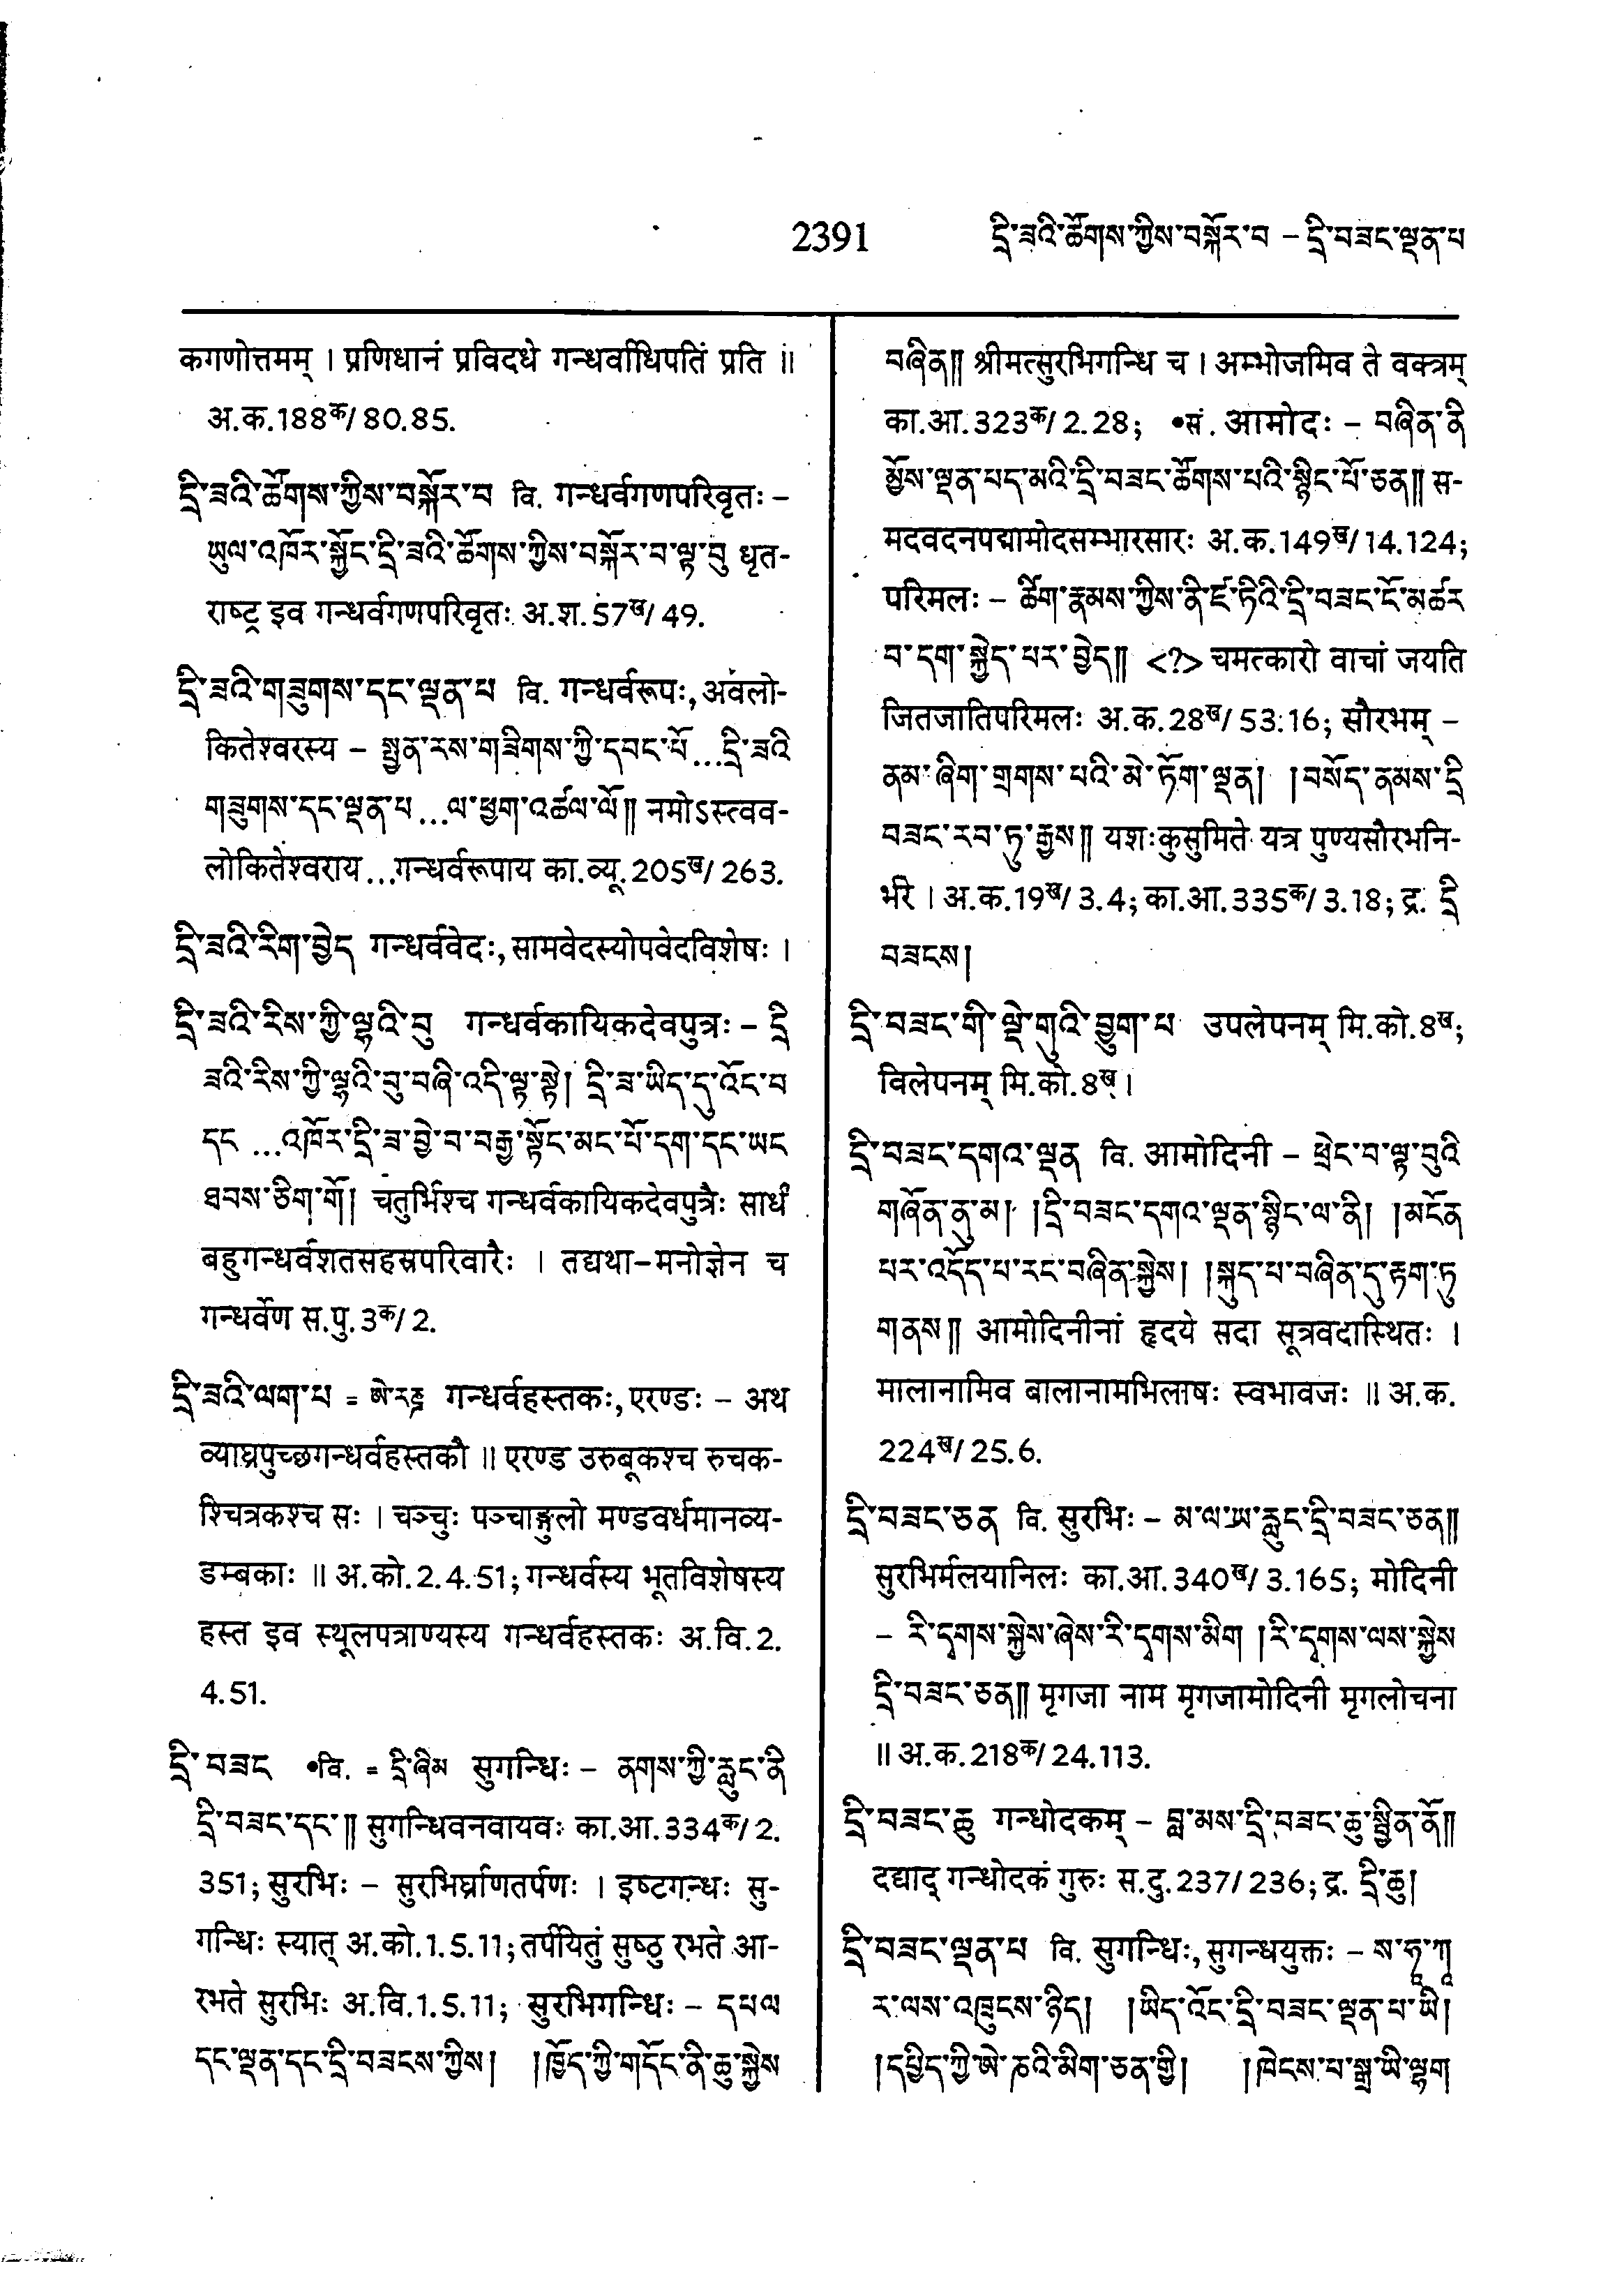 2391 དྲི་ཟའི་ཚོགས་ཀྱིས་བསྐོར་བ – དྲི་བཟང་ལྡན་པ
कगणोत्तमम् । प्रणिधानं प्रविदधे गन्धर्वाधिपतिं प्रति ॥
अ.क.188क/80.85.
དྲི་ཟའི་ཚོགས་ཀྱིས་བསྐོར་བ वि. गन्धर्वगणपरिवृतः –
ཡུལ་འཁོར་སྐྱོང་དྲི་ཟའི་ཚོགས་ཀྱིས་བསྐོར་བ་ལྟ་བུ धृत-
राष्ट्र इव गन्धर्वगणपरिवृतः अ.श.57ख/49.
དྲི་ཟའི་གཟུགས་དང་ལྡན་པ वि. गन्धर्वरूपः, अवलो-
कितेश्वरस्य – སྤྱན་རས་གཟིགས་ཀྱི་དབང་པོ...དྲི་ཟའི
གཟུགས་དང་ལྡན་པ...ལ་ཕྱག་འཚལ་ལོ༎ नमोऽस्त्वव-
लोकितेश्वराय...गन्धर्वरूपाय का.व्यू.205ख/263.
དྲི་ཟའི་རིག་བྱེད गन्धर्ववेदः, सामवेदस्योपवेदविशेषः ।
དྲི་ཟའི་རིས་ཀྱི་ལྷའི་བུ गन्धर्वकायिकदेवपुत्रः – དྲི
ཟའི་རིས་ཀྱི་ལྷའི་བུ་བཞི་འདི་ལྟ་སྟེ། དྲི་ཟ་ཡིད་དུ་འོང་བ
དང ...འཁོར་དྲི་ཟ་བྱེ་བ་བརྒྱ་སྟོང་མང་པོ་དག་དང་ཡང
ཐབས་ཅིག་གོ། चतुर्भिश्च गन्धर्वकायिकदेवपुत्रैः सार्धं
बहुगन्धर्वशतसहस्रपरिवारैः । तद्यथा–मनोज्ञेन च
गन्धर्वेण स.पु.3क/2.
དྲི་ཟའི་ལག་པ = ཨེ་རཎྜ गन्धर्वहस्तकः, एरण्डः – अथ
व्याघ्रपुच्छगन्धर्वहस्तकौ ॥ एरण्ड उरुबूकश्च रुचक-
श्चित्रकश्च सः । चञ्चुः पञ्चाङ्गुलो मण्डवर्धमानव्य-
डम्बकाः ॥ अ.को.2.4.51; गन्धर्वस्य भूतविशेषस्य
हस्त इव स्थूलपत्राण्यस्य गन्धर्वहस्तकः अ.वि.2.
4.51.
དྲི་བཟང •वि. = དྲི་ཞིམ सुगन्धिः – ནགས་ཀྱི་རླུང་ནི
དྲི་བཟང་དང་༎ सुगन्धिवनवायवः का.आ.334क/2.
351; सुरभिः – सुरभिर्घ्राणतर्पणः । इष्टगन्धः सु-
गन्धिः स्यात् अ.को.1.5.11; तर्पयितुं सुष्ठु रभते आ-
रभते सुरभिः अ.वि.1.5.11; सुरभिगन्धिः – དཔལ
དང་ལྡན་དང་དྲི་བཟངས་ཀྱིས། །ཁྱོད་ཀྱི་གདོང་ནི་ཆུ་སྐྱེས
བཞིན༎ श्रीमत्सुरभिगन्धि च । अम्भोजमिव ते वक्त्रम्
का.आ.323क/2.28; •सं. आमोदः – བཞིན་ནི
མྱོས་ལྡན་པད་མའི་དྲི་བཟང་ཚོགས་པའི་སྙིང་པོ་ཅན༎ स-
मदवदनपद्मामोदसम्भारसारः अ.क.149ख/14.124;
परिमलः – ཚིག་རྣམས་ཀྱིས་ནི་ཛཱ་ཏིའི་དྲི་བཟང་ངོ་མཚར
བ་དག་སྐྱེད་པར་བྱེད༎ <?> चमत्कारो वाचां जयति
जितजातिपरिमलः अ.क.28ख/53.16; सौरभम् –
ནམ་ཞིག་གྲགས་པའི་མེ་ཏོག་ལྡན། །བསོད་ནམས་དྲི
བཟང་རབ་ཏུ་རྒྱས༎ यशःकुसुमिते यत्र पुण्यसौरभनि-
र्भरे । अ.क.19ख/3.4; का.आ.335क/3.18; द्र. དྲི
བཟངས།
དྲི་བཟང་གི་ལྡེ་གུའི་བྱུག་པ उपलेपनम् मि.को.8ख;
विलेपनम् मि.को.8ख ।
དྲི་བཟང་དགའ་ལྡན वि. आमोदिनी – ཕྲེང་བ་ལྟ་བུའི
གཞོན་ནུ་མ། །དྲི་བཟང་དགའ་ལྡན་སྙིང་ལ་ནི། །མངོན
པར་འདོད་པ་རང་བཞིན་སྐྱེས། །སྐུད་པ་བཞིན་དུ་རྟག་ཏུ
གནས༎ आमोदिनीनां हृदये सदा सूत्रवदास्थितः ।
मालानामिव बालानामभिलाषः स्वभावजः ॥ अ.क.
224ख/25.6.
དྲི་བཟང་ཅན वि. सुरभिः – མ་ལ་ཡ་རླུང་དྲི་བཟང་ཅན༎
सुरभिर्मलयानिलः का.आ.340ख/3.165; मोदिनी
– རི་དྭགས་སྐྱེས་ཞེས་རི་དྭགས་མིག །རི་དྭགས་ལས་སྐྱེས
དྲི་བཟང་ཅན༎ मृगजा नाम मृगजामोदिनी मृगलोचना
॥ अ.क.218क/24.113.
དྲི་བཟང་ཆུ गन्धोदकम् – བླ་མས་དྲི་བཟང་ཆུ་སྦྱིན་ནོ༎
दद्याद् गन्धोदकं गुरुः स.दु.237/236; द्र. དྲི་ཆུ།
དྲི་བཟང་ལྡན་པ वि. सुगन्धिः, सुगन्धयुक्तः – ས་ཧཱ་ཀཱ
ར་ལས་འཁྲུངས་ཉིད། །ཡིད་འོང་དྲི་བཟང་ལྡན་པ་ཡི།
།དཔྱིད་ཀྱི་ཨེ་ཎའི་མིག་ཅན་གྱི། །ཁེངས་པ་སྒྲ་ཡི་ལྷག